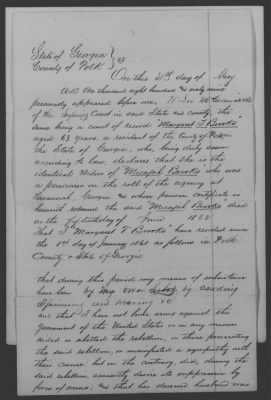 State of Georgia
County of Polk } SS
On this 21st day of May
A.D. one thousand eight hundred and sixty nine
personally appeared before me,
of the Superior Court in said State and County, the
same being a court of record Margaret T Brooks
aged 63 years, a resident of the County of Polk in
the State of Georgia, who, being duly sworn
according to law, declares that she is the
identical Widow of Micajah Brooks who was
a pensioner on the roll of the agency at
Savannah, Georgia & whose pension certificate is
herewith returned the said Micajah Brooks died
on the fifth day of June 186
that I Margaret T Brooks have resided since
the 1st day of January 1861 as follows in Polk
County & State of Georgia
that during this period my means of subsistence
have been by my own labor by carding
Spinning and weaving &c
and that I have not borne arms against the
Government of the United States or in any manner
aided or abetted the rebellion, or those prosecuting
the said rebellion, or manifested a sympathy with
their cause; but on the contrary, did, during the
said rebellion earnestly desire its suppression by
force of arms; & that her deceased husband was